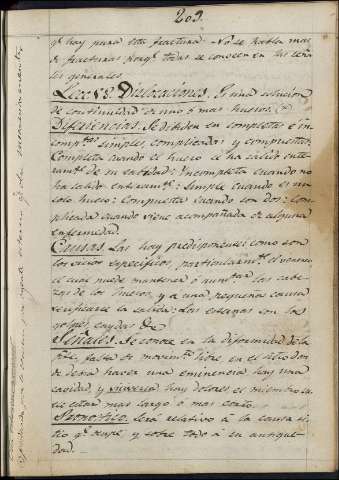 203.
qe. hay para esta fractura. No se habla mas
de fracturas porqe. todas se conocen en las seña
les generales.
Lecc. 8ª Dislocaciones. Es una solucion
de continuidad de uno ó mas huesos. (x)
Diferencias. Se dividen en completas é in
comptas. simples, complicadas y compuestas:
Completa cuando el hueso se ha salido ente
ramte. de su cavidad: Incompleta cuando no
ha salido enteramte.: Simple cuando es un
solo hueso: Compuesta cuando son dos: Com
plicada cuando viene acompañada de alguna
enfermedad.
Causas. Las hay predisponentes: como son
los vicios especificos, particularmte. el venereo
el cual puede mantener ó aumtar. las cabe
zas de los huesos, y a una pequeña causa
verificarse la salida: Las esternas son los
golpes caydas &a.
Señales. Se conoce en la diformidad de la
pte., falta de movimto. libre en el
debia hacer una eminencia hay una
cavidad, y viceversa hay dolores el miembro su
ele estar mas largo ó mas corto.
Pronostico. Será relativo á la causa si
tio qe. ocupe, y sobre todo á su antigue
dad.